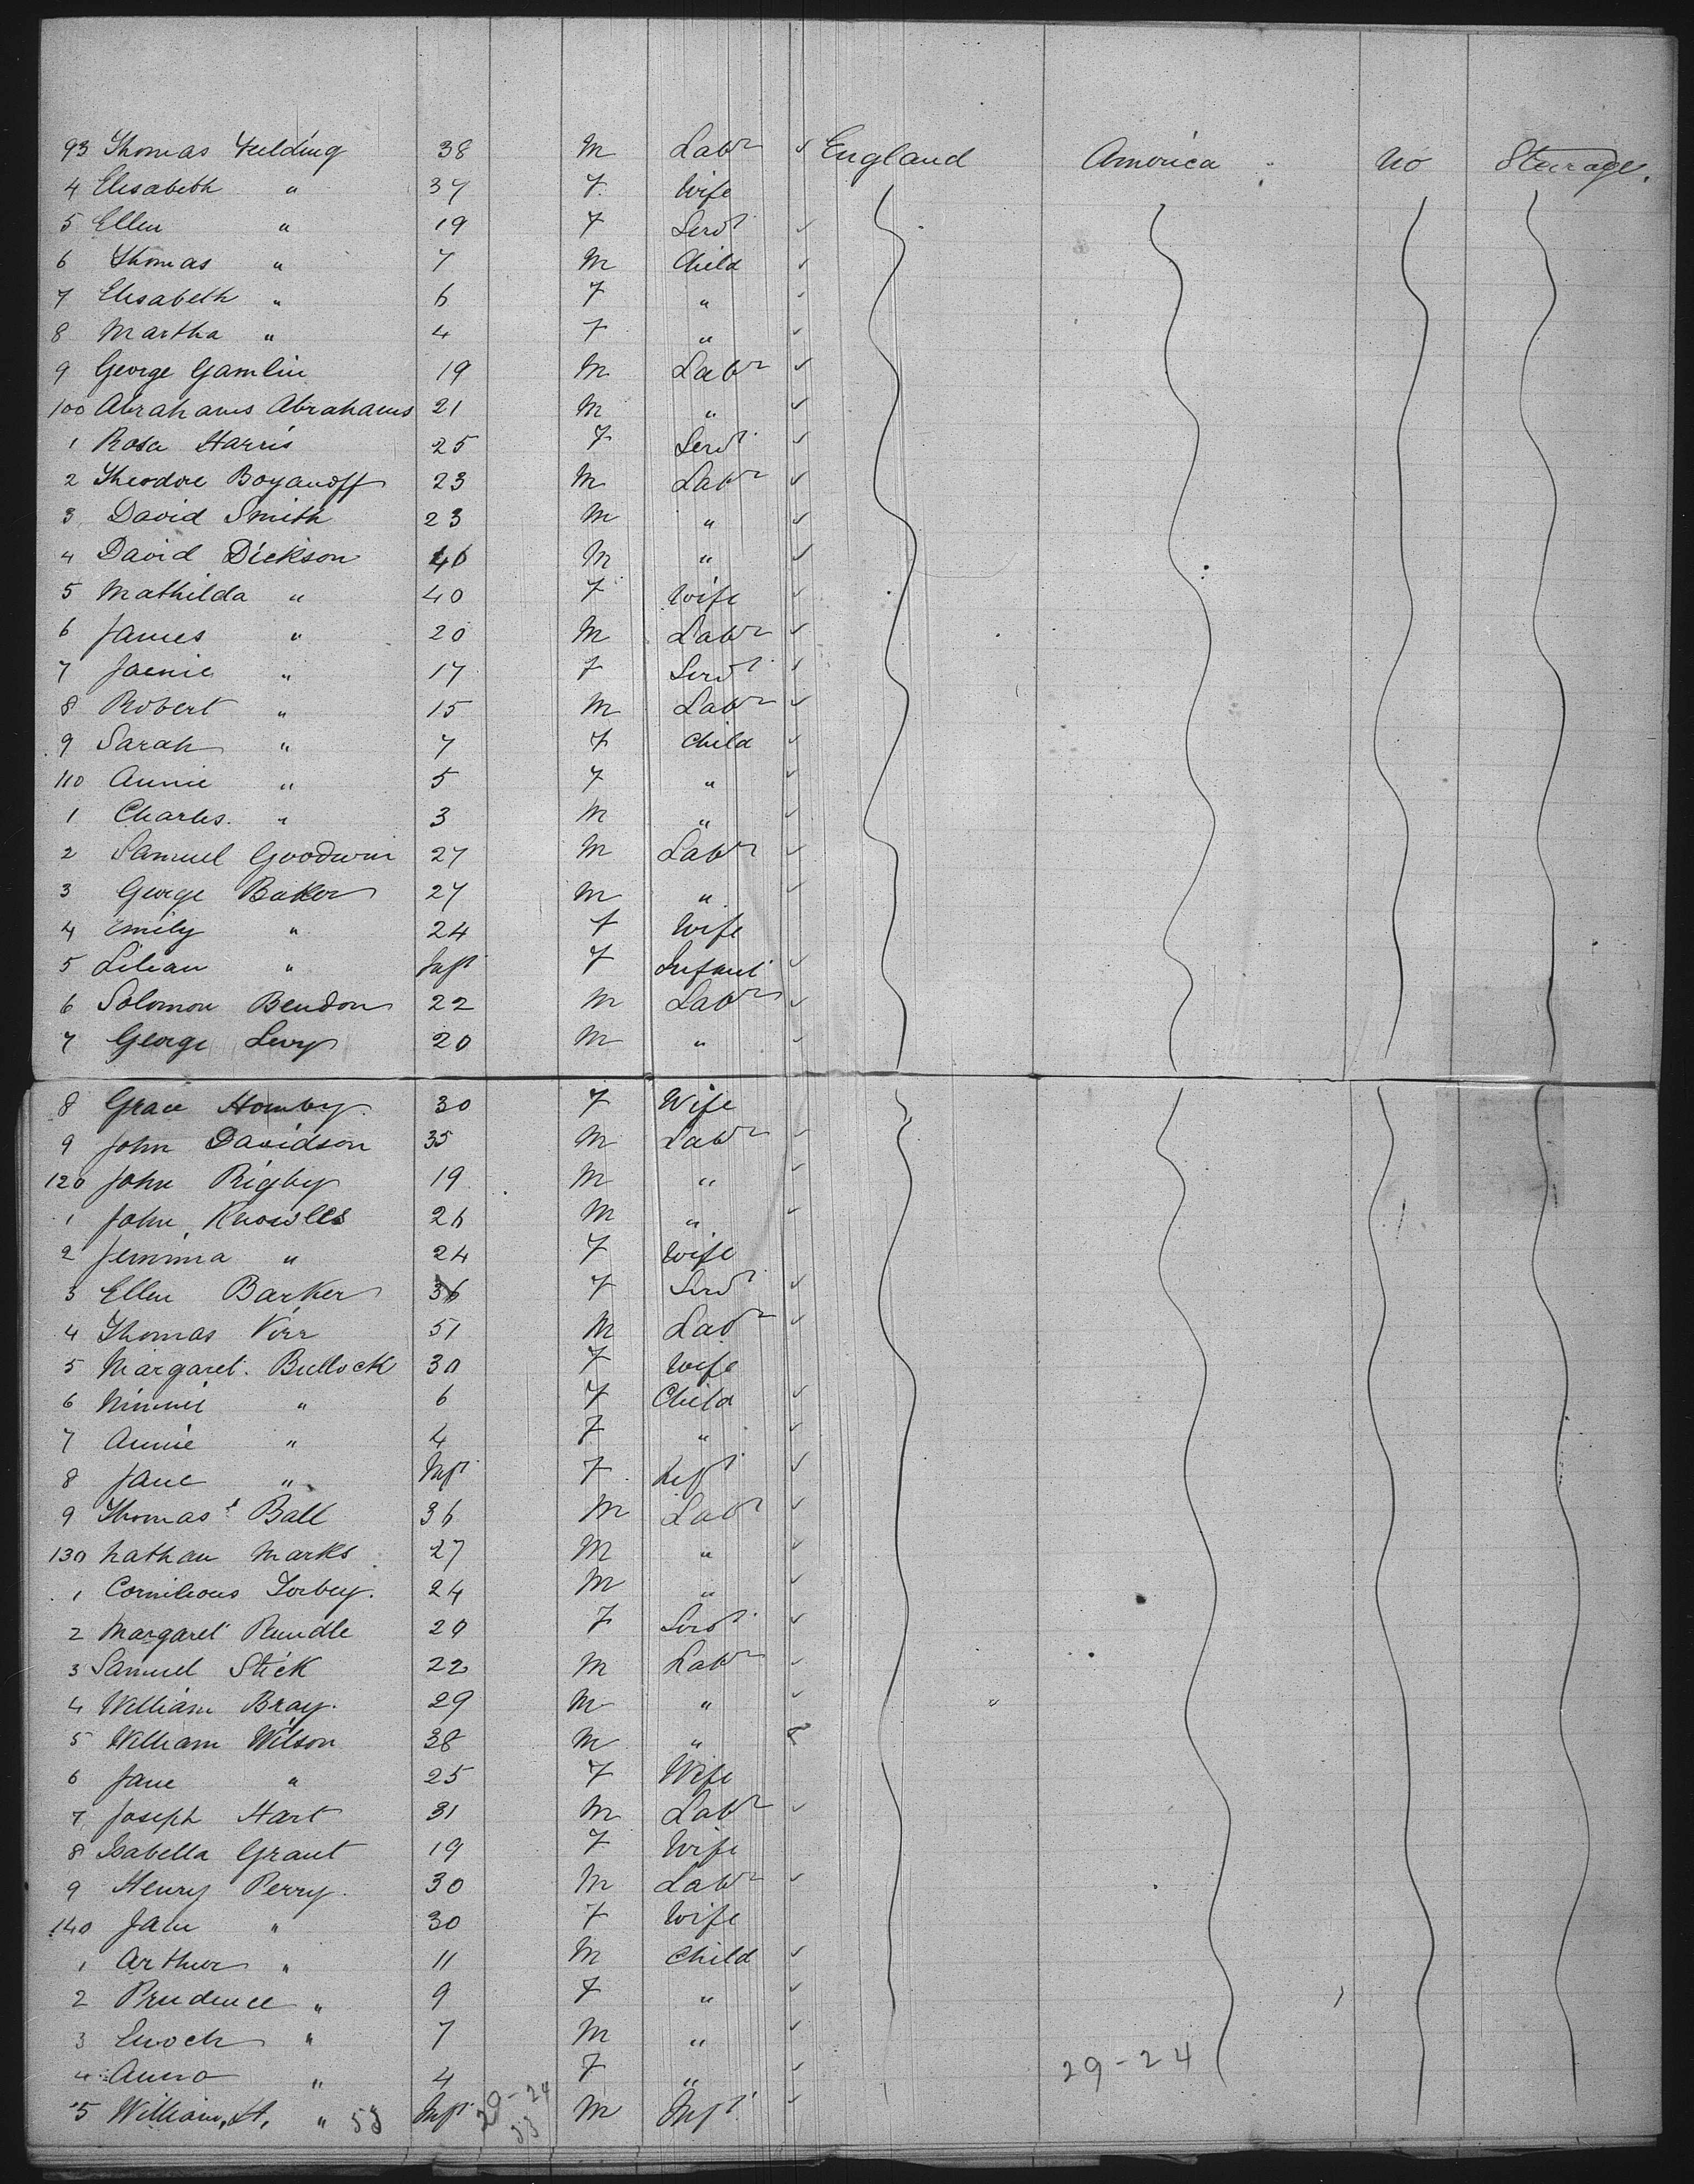 93 Thomas Feilding 38 M Labr ✓ England America No Steerage.
4 Elisabeth " 37 F. Wife
5 Ellen " 19 F Servt ✓
6 Thomas " 7 M Child ✓
7 Elisabeth " 6 F " ✓
8 Martha " 4 F " ✓
9 George Gamlin 19 M Labr ✓
100 Abrahams Abrahams 21 M " ✓
1 Rosa Harris 25 F Servt ✓
2 Theodore Boyanoff 23 M Labr ✓
3 David Smith 23 M " ✓
4 David Dickson 40 M " ✓
5 Mathilda " 40 F Wife ✓
6 James " 20 M Labr ✓
7 Jaenie " 17 F Servt ✓
8 Robert " 15 M Labr ✓
9 Sarah " 7 F Child ✓
110 Annie " 5 F " ✓
1 Charles. " 3 M " ✓
2 Samuel Goodwin 27 M Labr ✓
3 George Baker 27 M " ✓
4 Emily " 24 F Wife
5 Lilian " Inft F Infant ✓
6 Solomon Bendon 22 M Labr ✓
7 George Levy 20 M " ✓
8 Grace Hornby. 30 F Wife
9 John Davidson 35 M Labr ✓
120 John Rigby 19 M " ✓
1 John Knowles 26 M " ✓
2 Jemima " 24 F Wife
3 Ellen Barker 36 F Servt ✓
4 Thomas Virr 51 M Labr ✓
5 Margaret. Bullock 30 F Wife
6 Minnie " 6 F Child ✓
7 Annie " 4 F " ✓
8 Jane " Inft F Inft ✓
9 Thomas Ball 36 M Labr ✓
130 Nathan Marks 27 M " ✓
1 Cornilious Torbey. 24 M " ✓
2 Margaret Rundle 20 F Servt ✓
3 Samuel Stick 22 M Labr ✓
4 William Bray. 29 M " ✓ "
5 William Wilson 38 M "
6 Jane " 25 F Wife
7 Joseph Hart 31 M Labr ✓
8 Isabella Grant 19 F Wife
9 Henry Perry. 30 M Labr ✓
140 Jane " 30 F Wife
1 Arthur " 11 M Child ✓
2 Prudence " 9 F " ✓
3 Enoch " 7 M " ✓
4 Anna " 4 F " ✓ 29-24
5 William, H, " 53 Inft 29-24 53 M Inft ✓